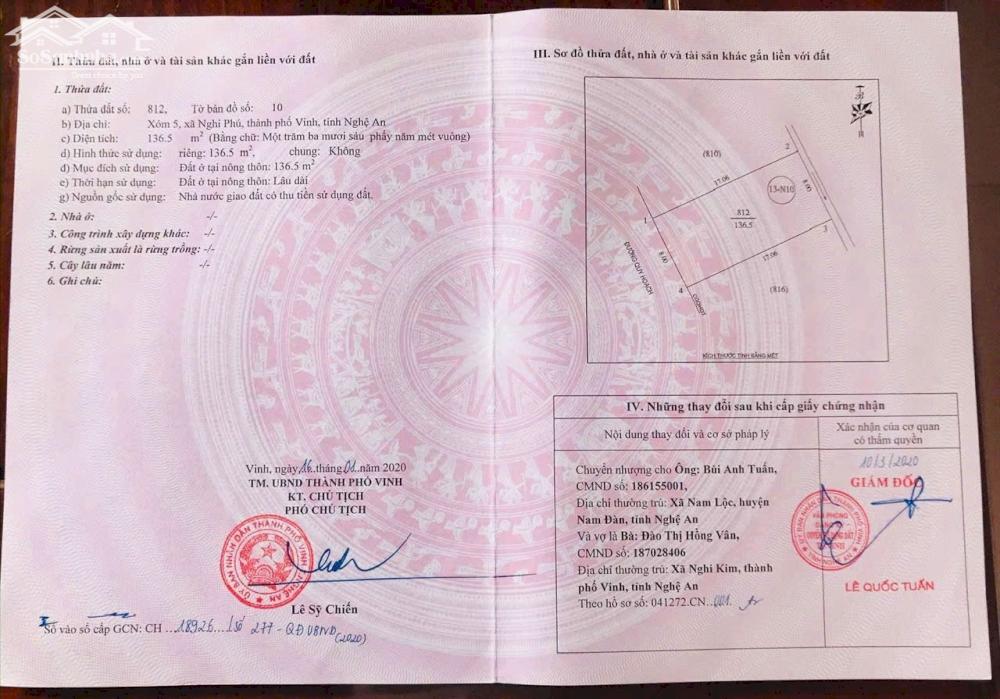 SoSanhnha
Great choice by you
II. Thửa đất, nhà ở và tài sản khác gắn liền với đất
1. Thửa đất:
a) Thửa đất số: 812, Tờ bản đồ số: 10
b) Địa chỉ: Xóm 5, xã Nghi Phú, thành phố Vinh, tỉnh Nghệ An
c) Diện tích: 136.5 m² (Bằng chữ: Một trăm ba mươi sáu phẩy năm mét vuông)
d) Hình thức sử dụng: riêng: 136.5 m², chung: Không
đ) Mục đích sử dụng: Đất ở tại nông thôn: 136.5 m²
e) Thời hạn sử dụng: Đất ở tại nông thôn: Lâu dài
g) Nguồn gốc sử dụng: Nhà nước giao đất có thu tiền sử dụng đất.
2. Nhà ở: -/-
3. Công trình xây dựng khác: -/-
4. Rừng sản xuất là rừng trồng: -/-
5. Cây lâu năm: -/-
6. Ghi chú:
Vinh, ngày 16 tháng 01 năm 2020
TM. UBND THÀNH PHỐ VINH
KT. CHỦ TỊCH
PHÓ CHỦ TỊCH
ỦY BAN NHÂN DÂN THÀNH PHỐ VINH
NGHỆ AN
Lê Sỹ Chiến
Số vào sổ cấp GCN: CH ...18926.../số 277-QĐ.UBND
(2020)
III. Sơ đồ thửa đất, nhà ở và tài sản khác gắn liền với đất
B
(810)
2
17.06
8.00
13-N10
812
136.5
1
3
ĐƯỜNG QUY HOẠCH
8.00
17.06
4
CQQHĐT
(816)
KÍCH THƯỚC TÍNH BẰNG MÉT
IV. Những thay đổi sau khi cấp giấy chứng nhận
Nội dung thay đổi và cơ sở pháp lý
Xác nhận của cơ quan
có thẩm quyền
Chuyển nhượng cho Ông: Bùi Anh Tuấn,
CMND số: 186155001,
Địa chỉ thường trú: Xã Nam Lộc, huyện
Nam Đàn, tỉnh Nghệ An
Và vợ là Bà: Đào Thị Hồng Vân,
CMND số: 187028406
Địa chỉ thường trú: Xã Nghi Kim, thành
phố Vinh, tỉnh Nghệ An
Theo hồ sơ số: 041272.CN..001.
10/3/2020
GIÁM ĐỐC
VĂN PHÒNG
ĐĂNG KÝ
QUYỀN SỬ DỤNG ĐẤT
LÊ QUỐC TUẤN